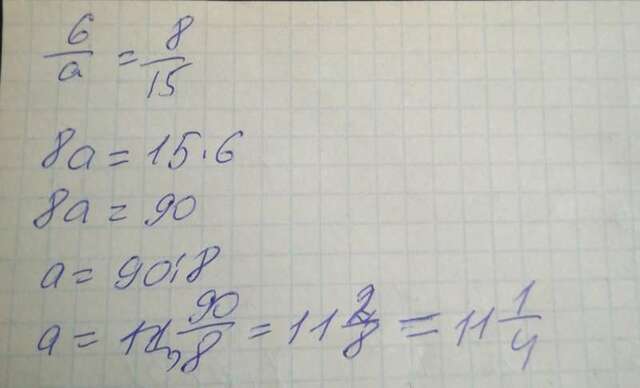 6/a = 8/15
8a = 15 · 6
8a = 90
a = 90:8
a = 90/8 = 11 2/8 = 11 1/4